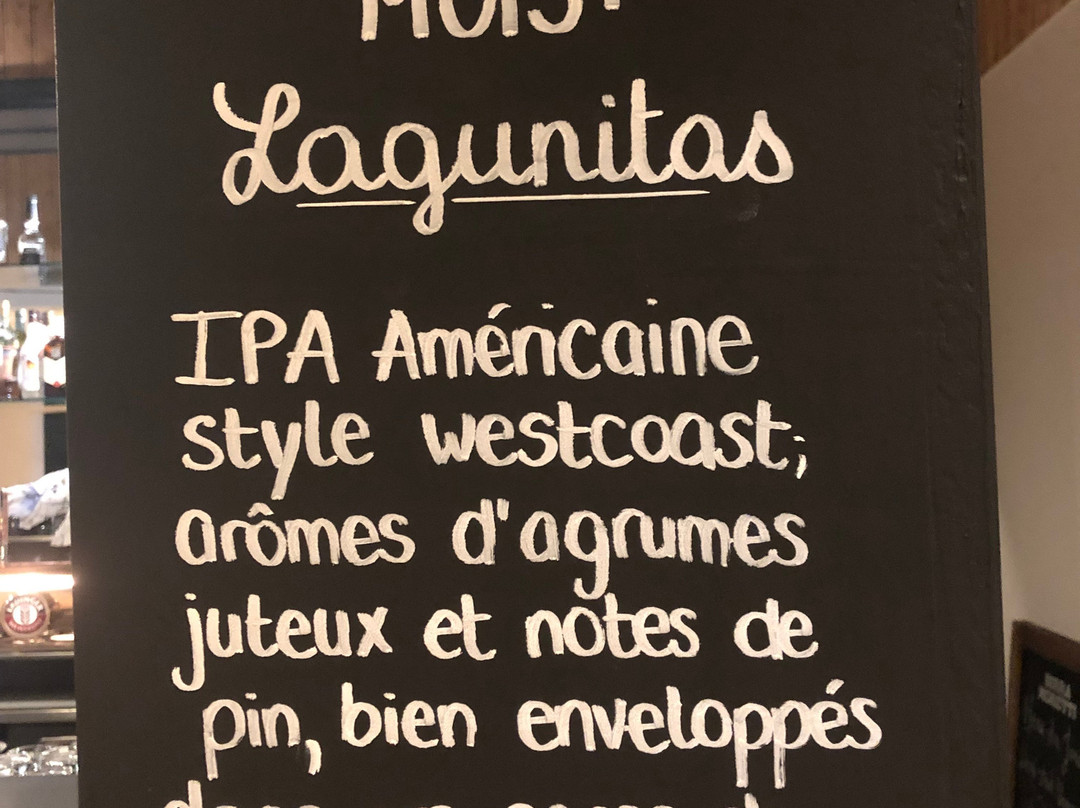 MOIS:
Lagunitas
IPA Américaine
style westcoast;
arômes d'agrumes
juteux et notes de
pin, bien enveloppés